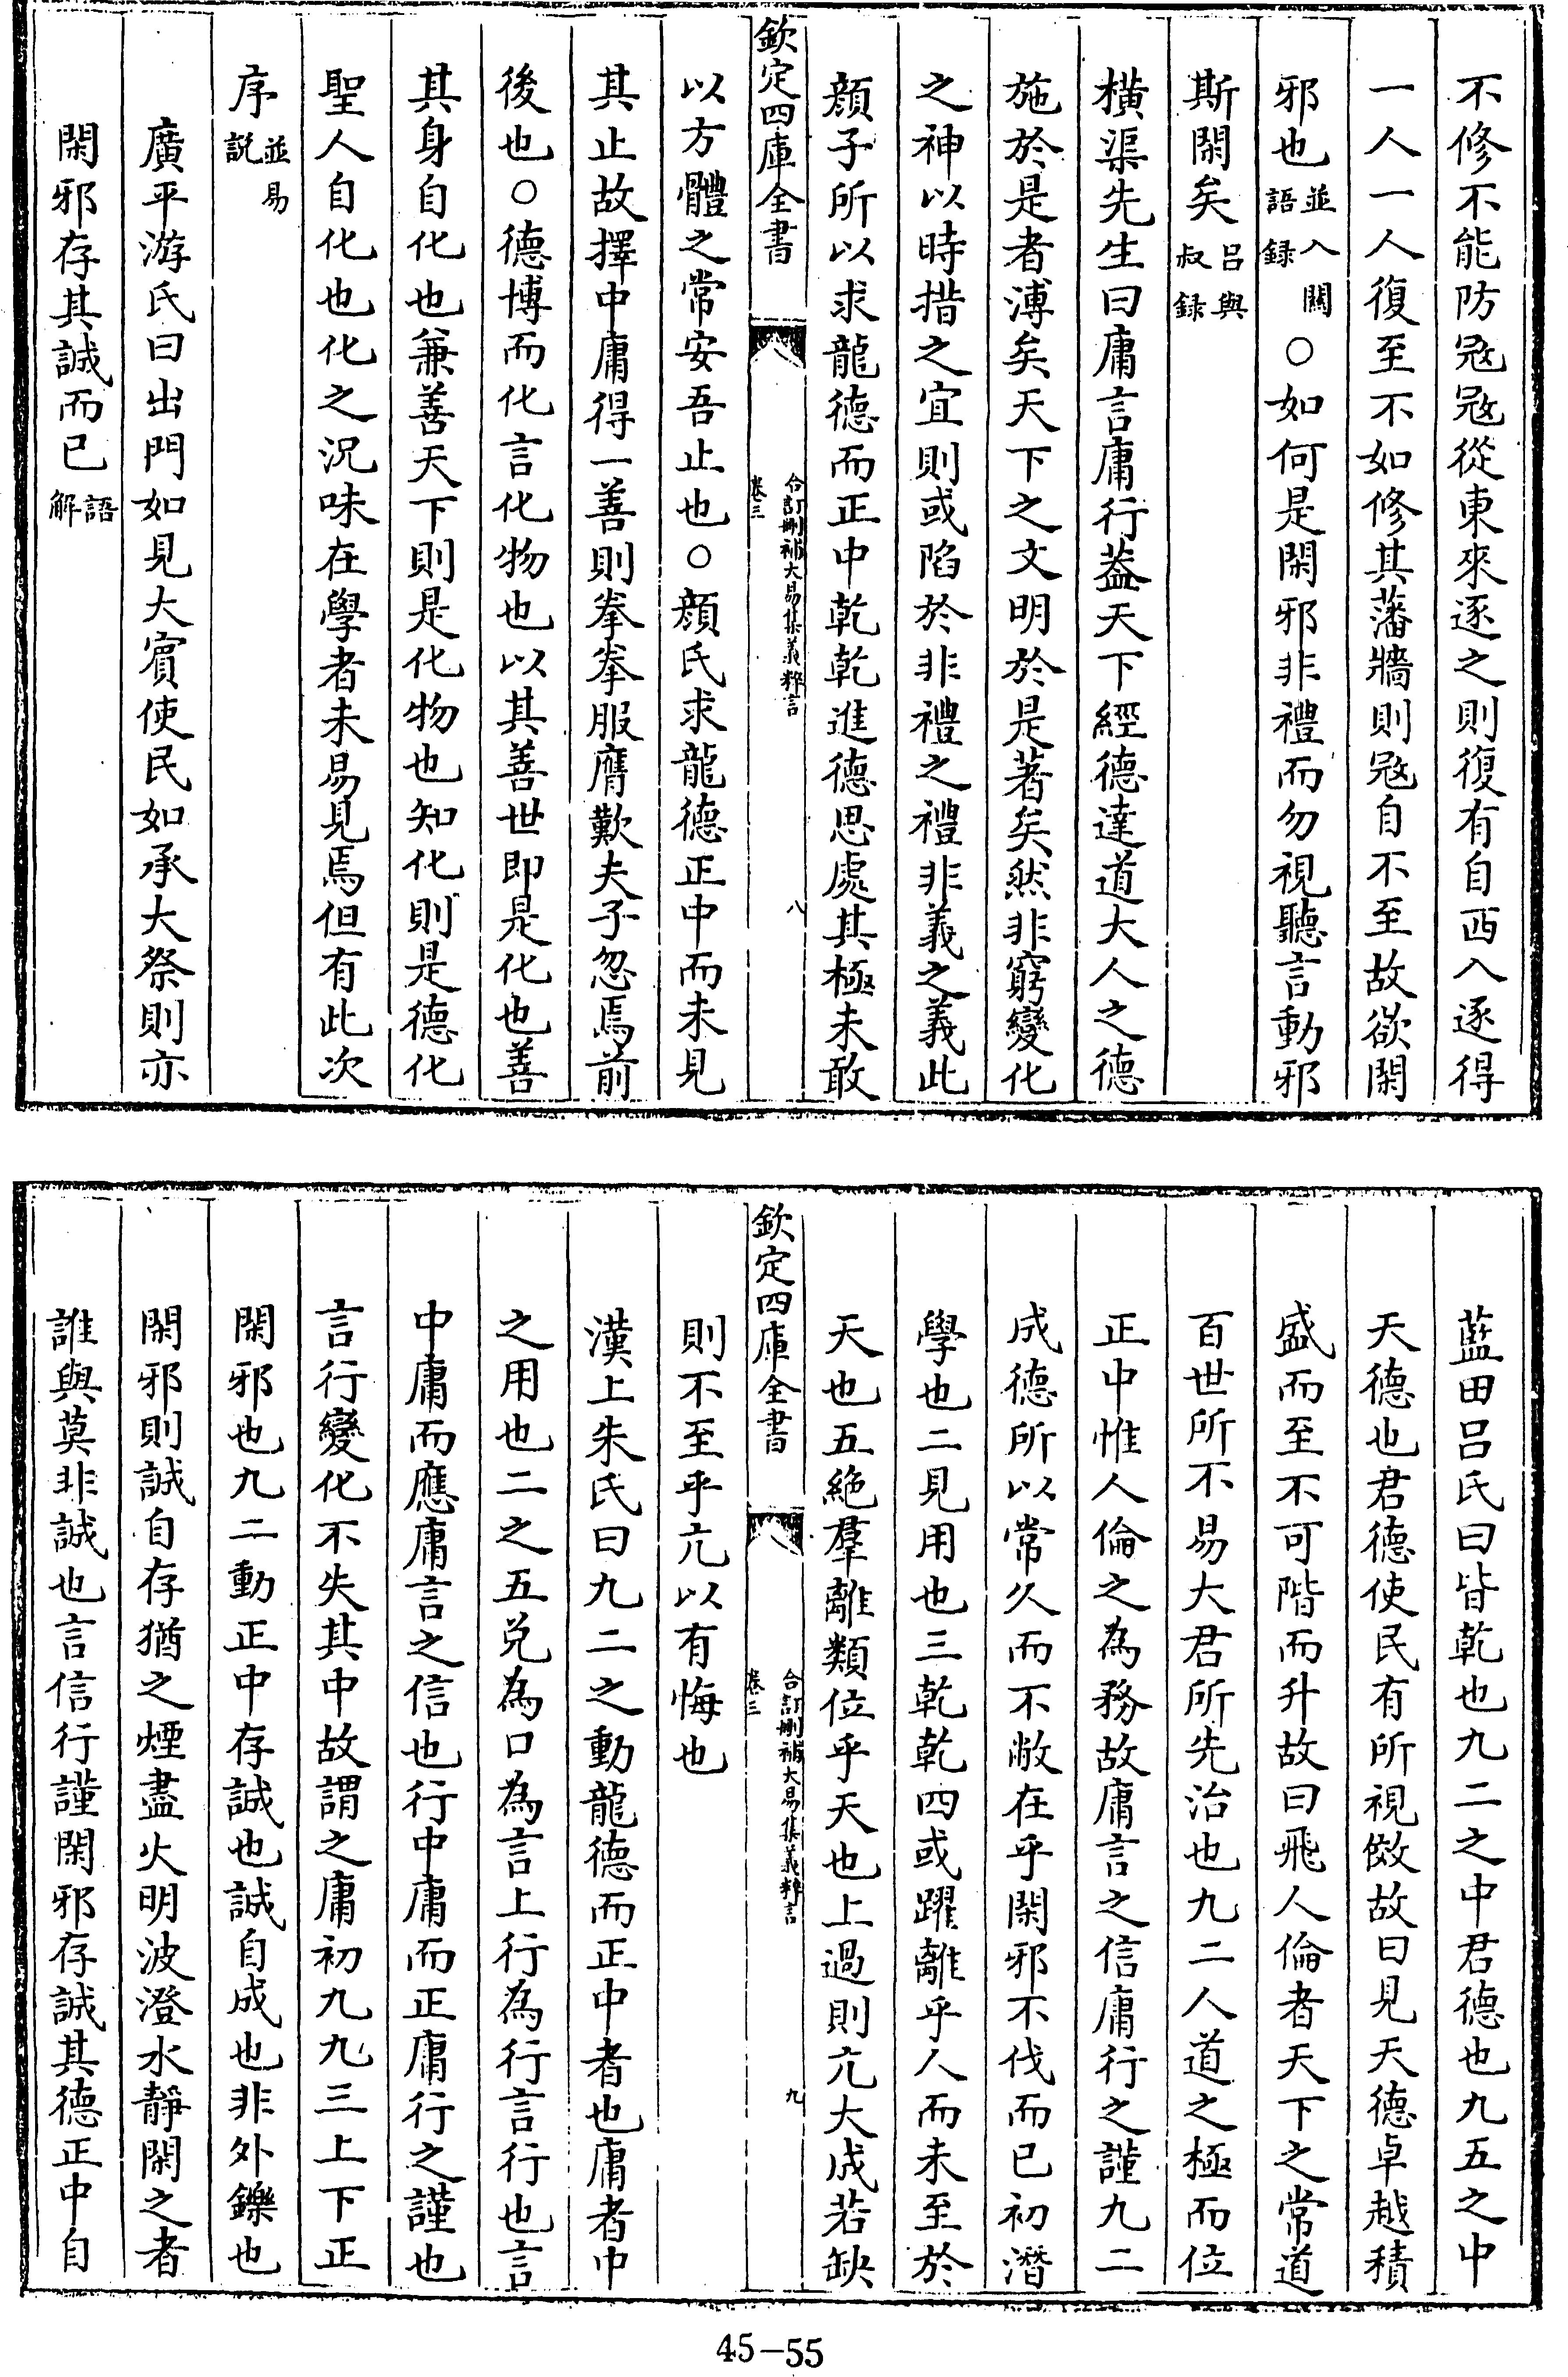 不修不能防冦冦從東來逐之則復有自西入逐得
一人一人復至不如修其藩牆則冦自不至故欲閑
邪也並入關語録○如何是閑邪非禮而勿視聽言動邪
斯閑矣吕與叔録
橫渠先生曰庸言庸行葢天下經德達道大人之德
施於是者溥矣天下之文明於是著矣然非窮變化
之神以時措之宜則或陷於非禮之禮非義之義此
顔子所以求龍德而正中乾乾進德思處其極未敢
欽定四庫全書
合訂刪補大易集義粹言
卷三
八
以方體之常安吾止也○顔氏求龍德正中而未見
其止故擇中庸得一善則拳拳服膺歎夫子忽焉前
後也○德博而化言化物也以其善世即是化也善
其身自化也兼善天下則是化物也知化則是德化
聖人自化也化之況味在學者未易見焉但有此次
序並易説
廣平游氏曰出門如見大賓使民如承大祭則亦
閑邪存其誠而已語解
藍田吕氏曰皆乾也九二之中君德也九五之中
天德也君德使民有所視傚故曰見天德卓越積
盛而至不可階而升故曰飛人倫者天下之常道
百世所不易大君所先治也九二人道之極而位
正中惟人倫之為務故庸言之信庸行之謹九二
成德所以常久而不敝在乎閑邪不伐而已初潛
學也二見用也三乾乾四或躍離乎人而未至於
天也五絶羣離類位乎天也上過則亢大成若缺
欽定四庫全書
合訂刪補大易集義粹言
卷三
九
則不至乎亢以有悔也
漢上朱氏曰九二之動龍德而正中者也庸者中
之用也二之五兑為口為言上行為行言行也言
中庸而應庸言之信也行中庸而正庸行之謹也
言行變化不失其中故謂之庸初九九三上下正
閑邪也九二動正中存誠也誠自成也非外鑠也
閑邪則誠自存猶之煙盡火明波澄水靜閑之者
誰與莫非誠也言信行謹閑邪存誠其德正中自
45-55